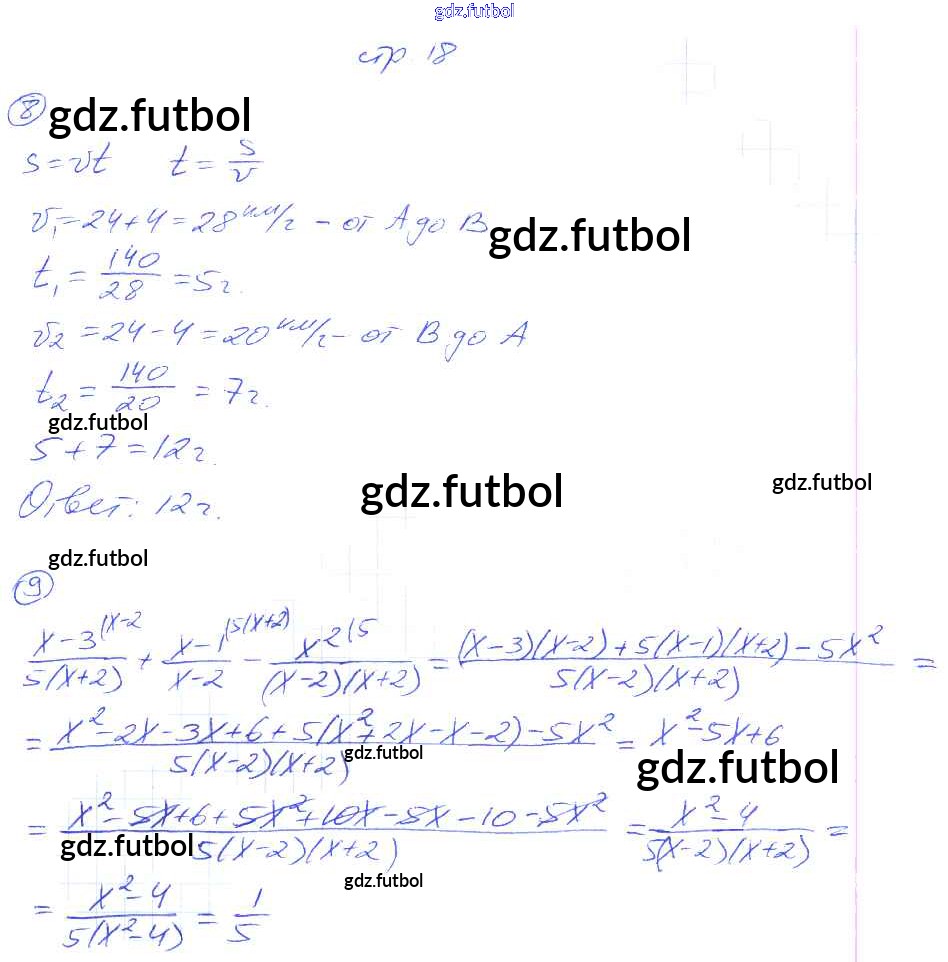 gdz.futbol
стр. 18
8 gdz.futbol
s = vt    t = s/v
v₁ = 24 + 4 = 28 км/г – от А до В gdz.futbol
t₁ = 140/28 = 5 г.
v₂ = 24 – 4 = 20 км/г – от В до А
t₂ = 140/20 = 7 г.
gdz.futbol
5 + 7 = 12 г.
gdz.futbol gdz.futbol
Ответ: 12 г.
gdz.futbol
9
(x–3)/(5(x+2)) (x–2 + (x–1)/(x–2) (5(x+2) – x²/((x–2)(x+2)) (5 = ((x–3)(x–2) + 5(x–1)(x+2) – 5x²)/(5(x–2)(x+2)) =
= (x² – 2x – 3x + 6 + 5(x² + 2x – x – 2) – 5x²)/(5(x–2)(x+2)) = x² – 5x + 6
gdz.futbol gdz.futbol
= (x² – 5x + 6 + 5x² + 10x – 5x – 10 – 5x²)/(5(x–2)(x+2)) = (x² – 4)/(5(x–2)(x+2)) =
gdz.futbol
gdz.futbol
= (x² – 4)/(5(x² – 4)) = 1/5